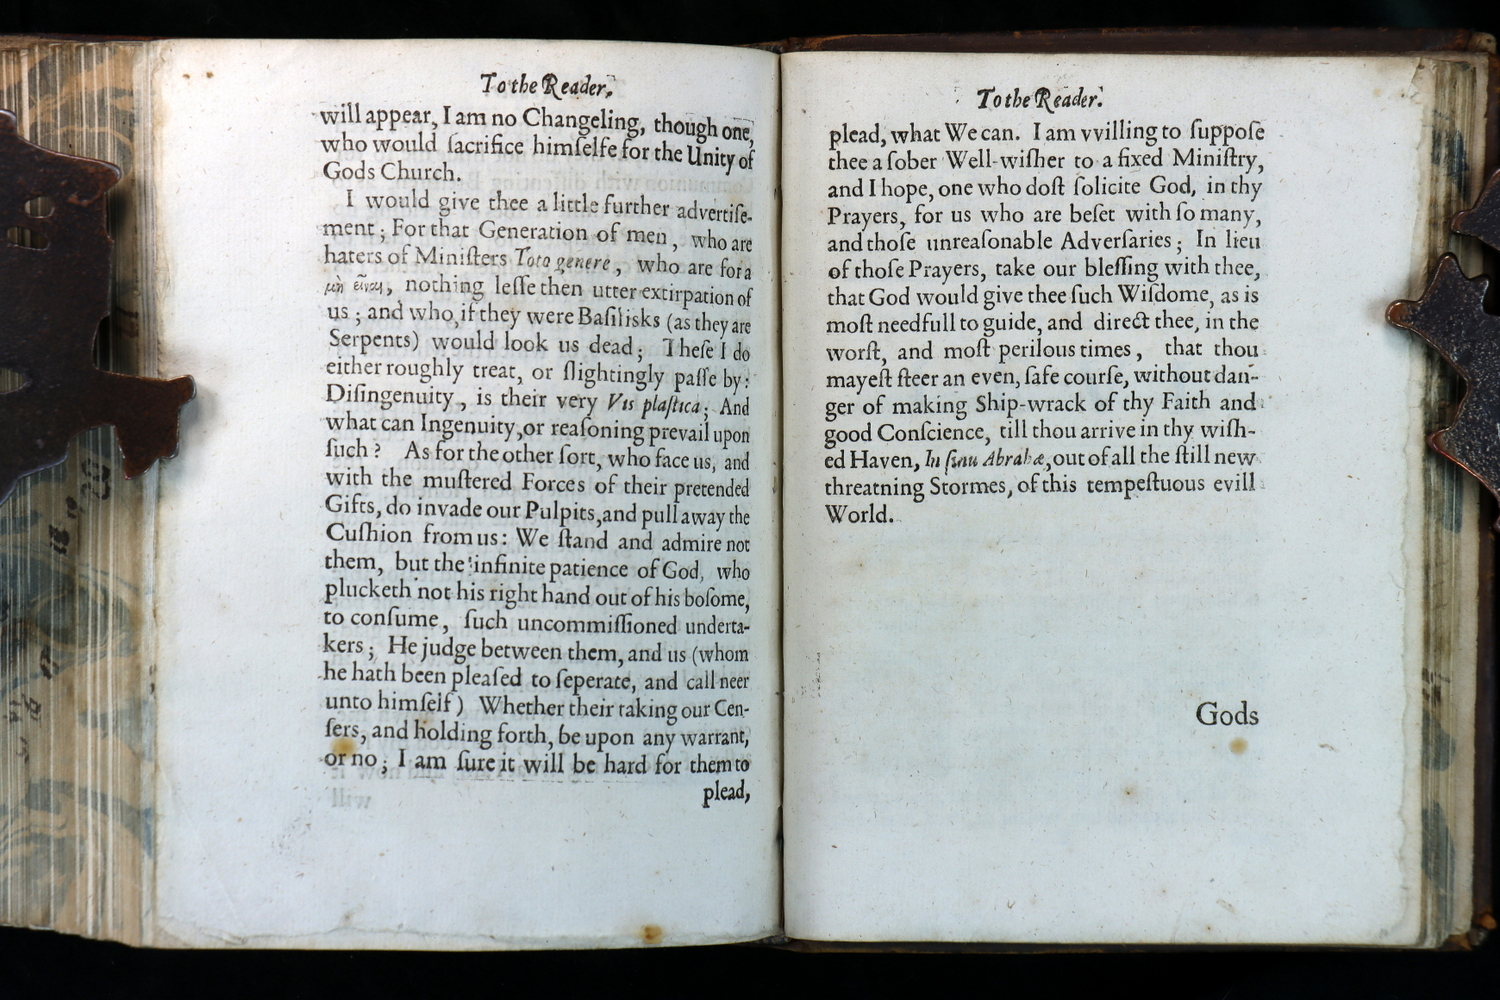 To the Reader.
will appear, I am no Changeling, though one,
who would ſacrifice himſelfe for the Unity of
Gods Church.
I would give thee a little further advertiſe-
ment; For that Generation of men, who are
haters of Miniſters Toto genere, who are for a
μὴ εἶναι, nothing leſſe then utter extirpation of
us; and who, if they were Baſilisks (as they are
Serpents) would look us dead; Theſe I do
either roughly treat, or ſlightingly paſſe by:
Diſingenuity, is their very Vis plaſtica; And
what can Ingenuity, or reaſoning prevail upon
ſuch? As for the other ſort, who face us, and
with the muſtered Forces of their pretended
Gifts, do invade our Pulpits, and pull away the
Cuſhion from us: We ſtand and admire not
them, but the infinite patience of God, who
plucketh not his right hand out of his boſome,
to conſume, ſuch uncommiſſioned underta-
kers; He judge between them, and us (whom
he hath been pleaſed to ſeperate, and call neer
unto himſelf) Whether their taking our Cen-
ſers, and holding forth, be upon any warrant,
or no; I am ſure it will be hard for them to
plead,
To the Reader.
plead, what We can. I am vvilling to ſuppoſe
thee a ſober Well-wiſher to a fixed Miniſtry,
and I hope, one who doſt ſolicite God, in thy
Prayers, for us who are beſet with ſo many,
and thoſe unreaſonable Adverſaries; In lieu
of thoſe Prayers, take our bleſſing with thee,
that God would give thee ſuch Wiſdome, as is
moſt needfull to guide, and direct thee, in the
worſt, and moſt perilous times, that thou
mayeſt ſteer an even, ſafe courſe, without dan-
ger of making Ship-wrack of thy Faith and
good Conſcience, till thou arrive in thy wiſh-
ed Haven, In ſinu Abrahæ, out of all the ſtill new
threatning Stormes, of this tempeſtuous evill
World.
Gods